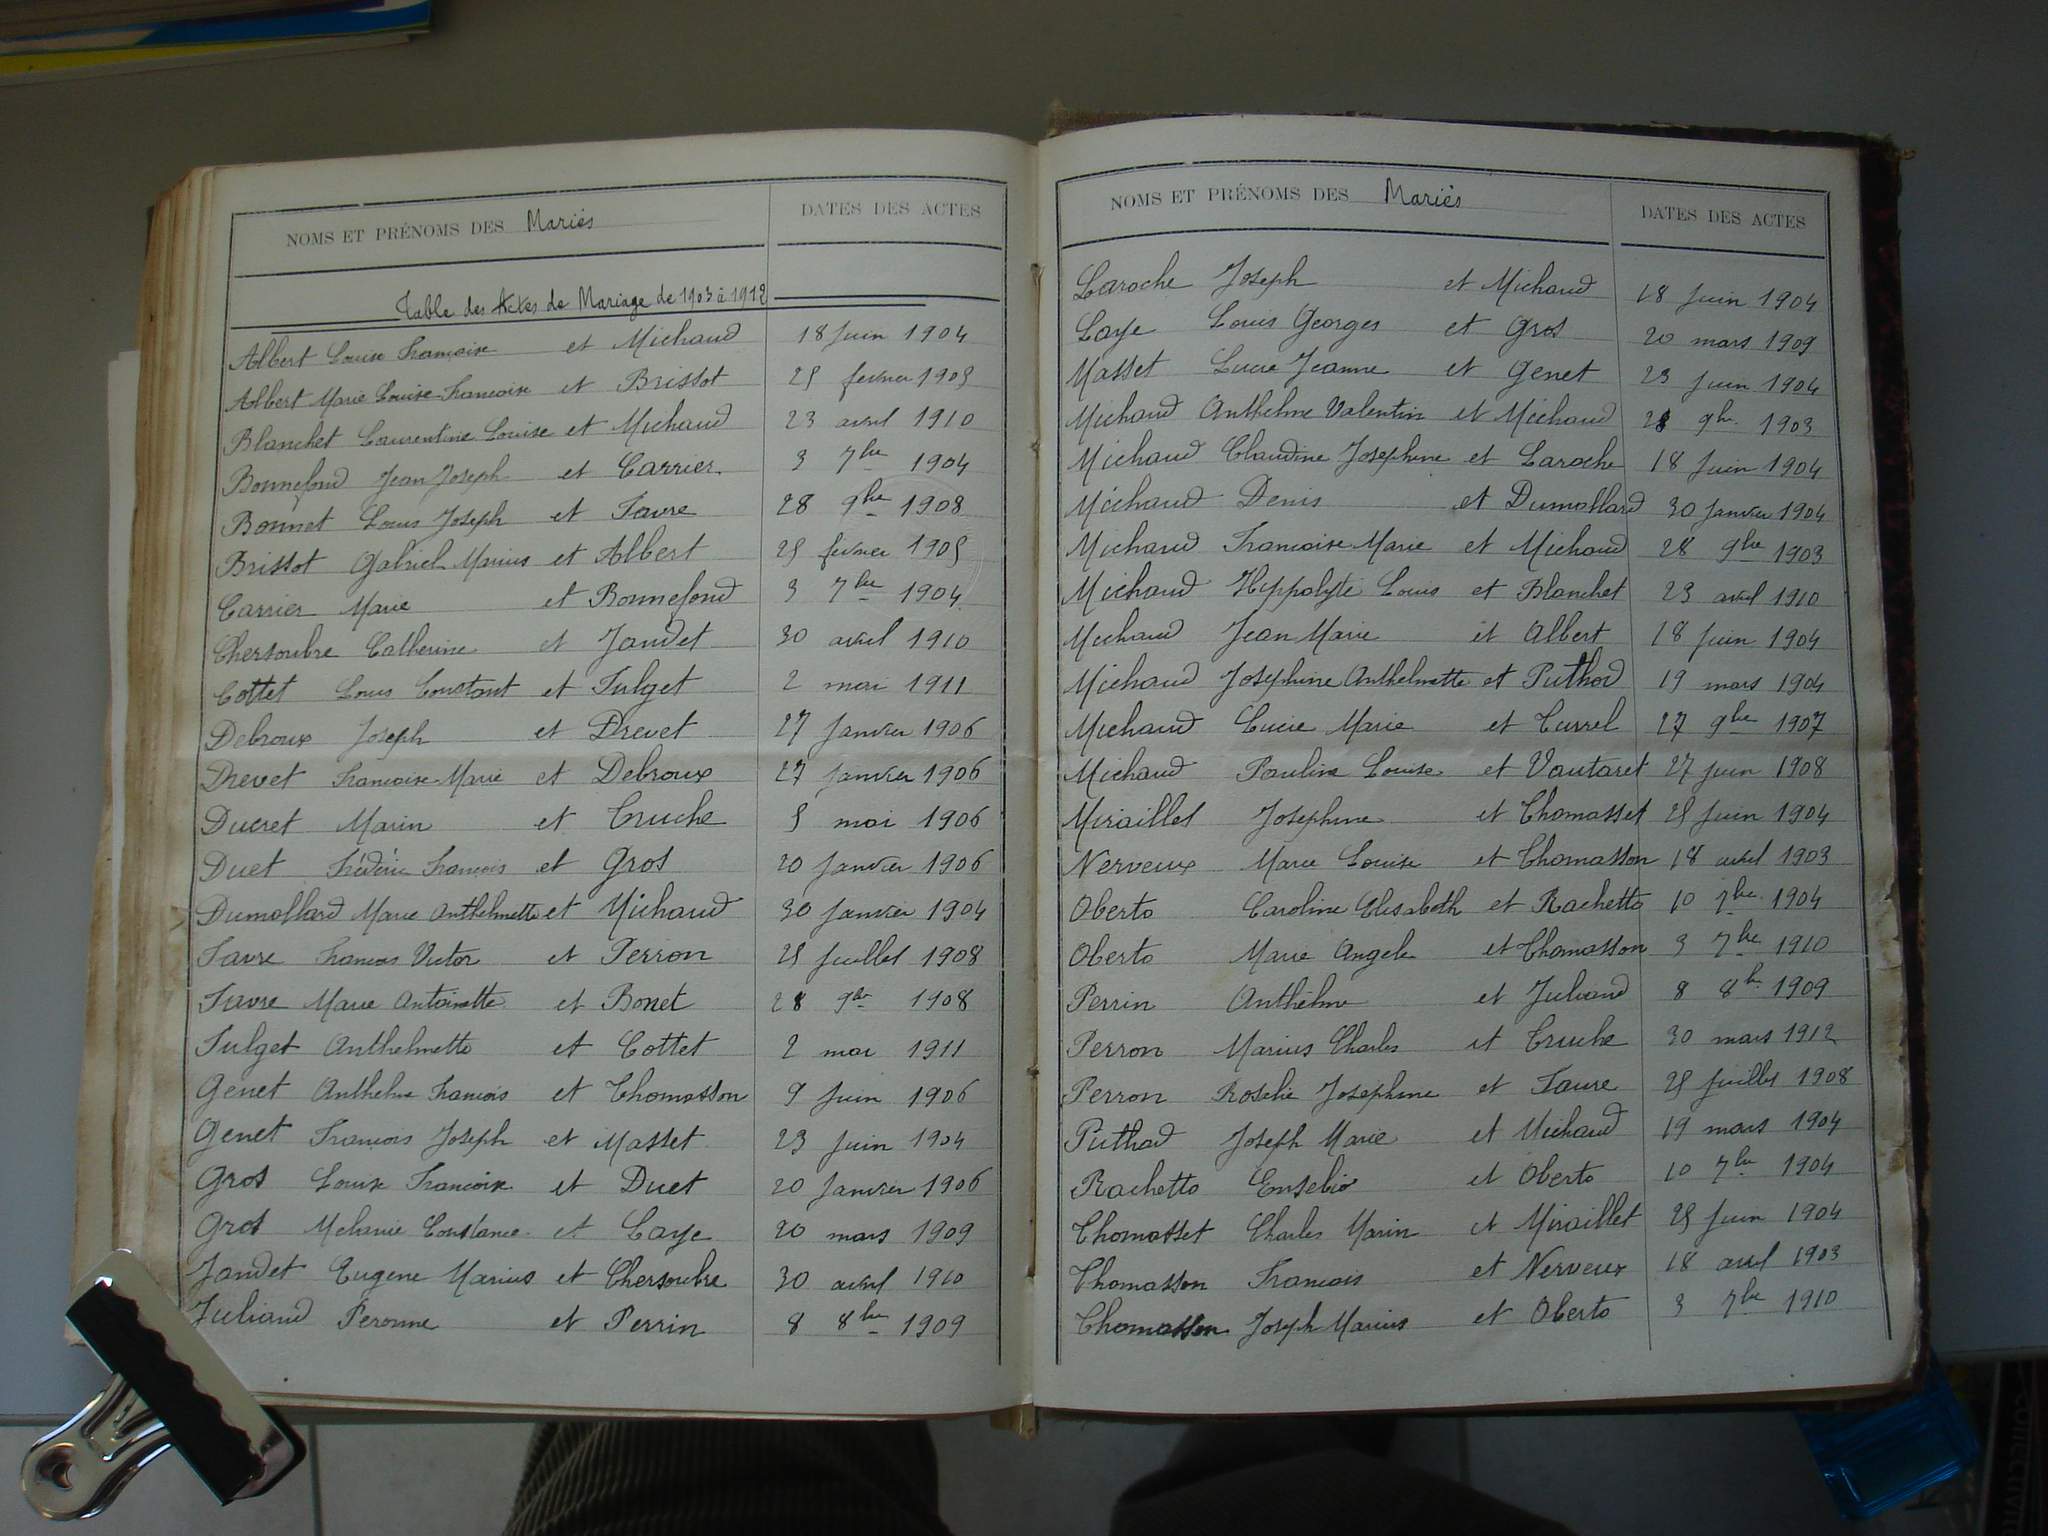 NOMS ET PRÉNOMS DES Mariés DATES DES ACTES
Table des Actes de Mariage de 1903 à 1912
Albert Louise Françoise et Michaud 18 Juin 1904
Albert Marie Louise Françoise et Brissot 25 février 1905
Blanchet Laurentine Louise et Michaud 23 avril 1910
Bonnefond Jean Joseph et Carrier 3 7bre 1904
Bonnet Louis Joseph et Favre 28 9bre 1908
Brissot Gabriel Marius et Albert 25 février 1905
Carrier Marie et Bonnefond 3 7bre 1904
Chersoubre Catherine et Jandet 30 avril 1910
Cottet Louis Constant et Fulget 2 mai 1911
Debroux Joseph et Drevet 27 Janvier 1906
Drevet Françoise Marie et Debroux 27 Janvier 1906
Ducret Marin et Truche 5 mai 1906
Duet Frédéric François et Gros 20 Janvier 1906
Dumollard Marie Anthelmette et Michaud 30 Janvier 1904
Favre François Victor et Perron 25 Juillet 1908
Favre Marie Antoinette et Bonet 28 9bre 1908
Fulget Anthelmette et Cottet 2 mai 1911
Genet Anthelme François et Thomasson 9 Juin 1906
Genet François Joseph et Masset 23 Juin 1904
Gros Louise Françoise et Duet 20 Janvier 1906
Gros Mélanie Constance et Laye 20 mars 1909
Jandet Eugene Marius et Chersoubre 30 avril 1910
Juliand Peronne et Perrin 8 8bre 1909
NOMS ET PRÉNOMS DES Mariés DATES DES ACTES
Laroche Joseph et Michaud 18 Juin 1904
Laye Louis Georges et Gros 20 mars 1909
Masset Lucie Jeanne et Genet 23 Juin 1904
Michaud Anthelme Valentin et Michaud 28 9bre 1903
Michaud Claudine Josephine et Laroche 18 Juin 1904
Michaud Denis et Dumollard 30 Janvier 1904
Michaud Françoise Marie et Michaud 28 9bre 1903
Michaud Hippolyte Louis et Blanchet 23 avril 1910
Michaud Jean Marie et Albert 18 Juin 1904
Michaud Joséphine Anthelmette et Puthod 19 mars 1904
Michaud Lucie Marie et Currel 27 9bre 1907
Michaud Pauline Louise et Vautaret 27 juin 1908
Miraillet Josephine et Thomasset 25 Juin 1904
Nerveux Marie Louise et Thomasson 18 avril 1903
Oberto Caroline Elisabeth et Rachetto 10 7bre 1904
Oberto Marie Angele et Thomasson 3 7bre 1910
Perrin Anthelme et Juliand 8 8bre 1909
Perron Marius Charles et Truche 30 mars 1912
Perron Rosalie Josephine et Favre 25 Juillet 1908
Puthod Joseph Marie et Michaud 19 mars 1904
Rachetto Eusebio et Oberto 10 7bre 1904
Thomasset Charles Marin et Miraillet 25 Juin 1904
Thomasson François et Nerveux 18 avril 1903
Thomasson Joseph Marius et Oberto 3 7bre 1910